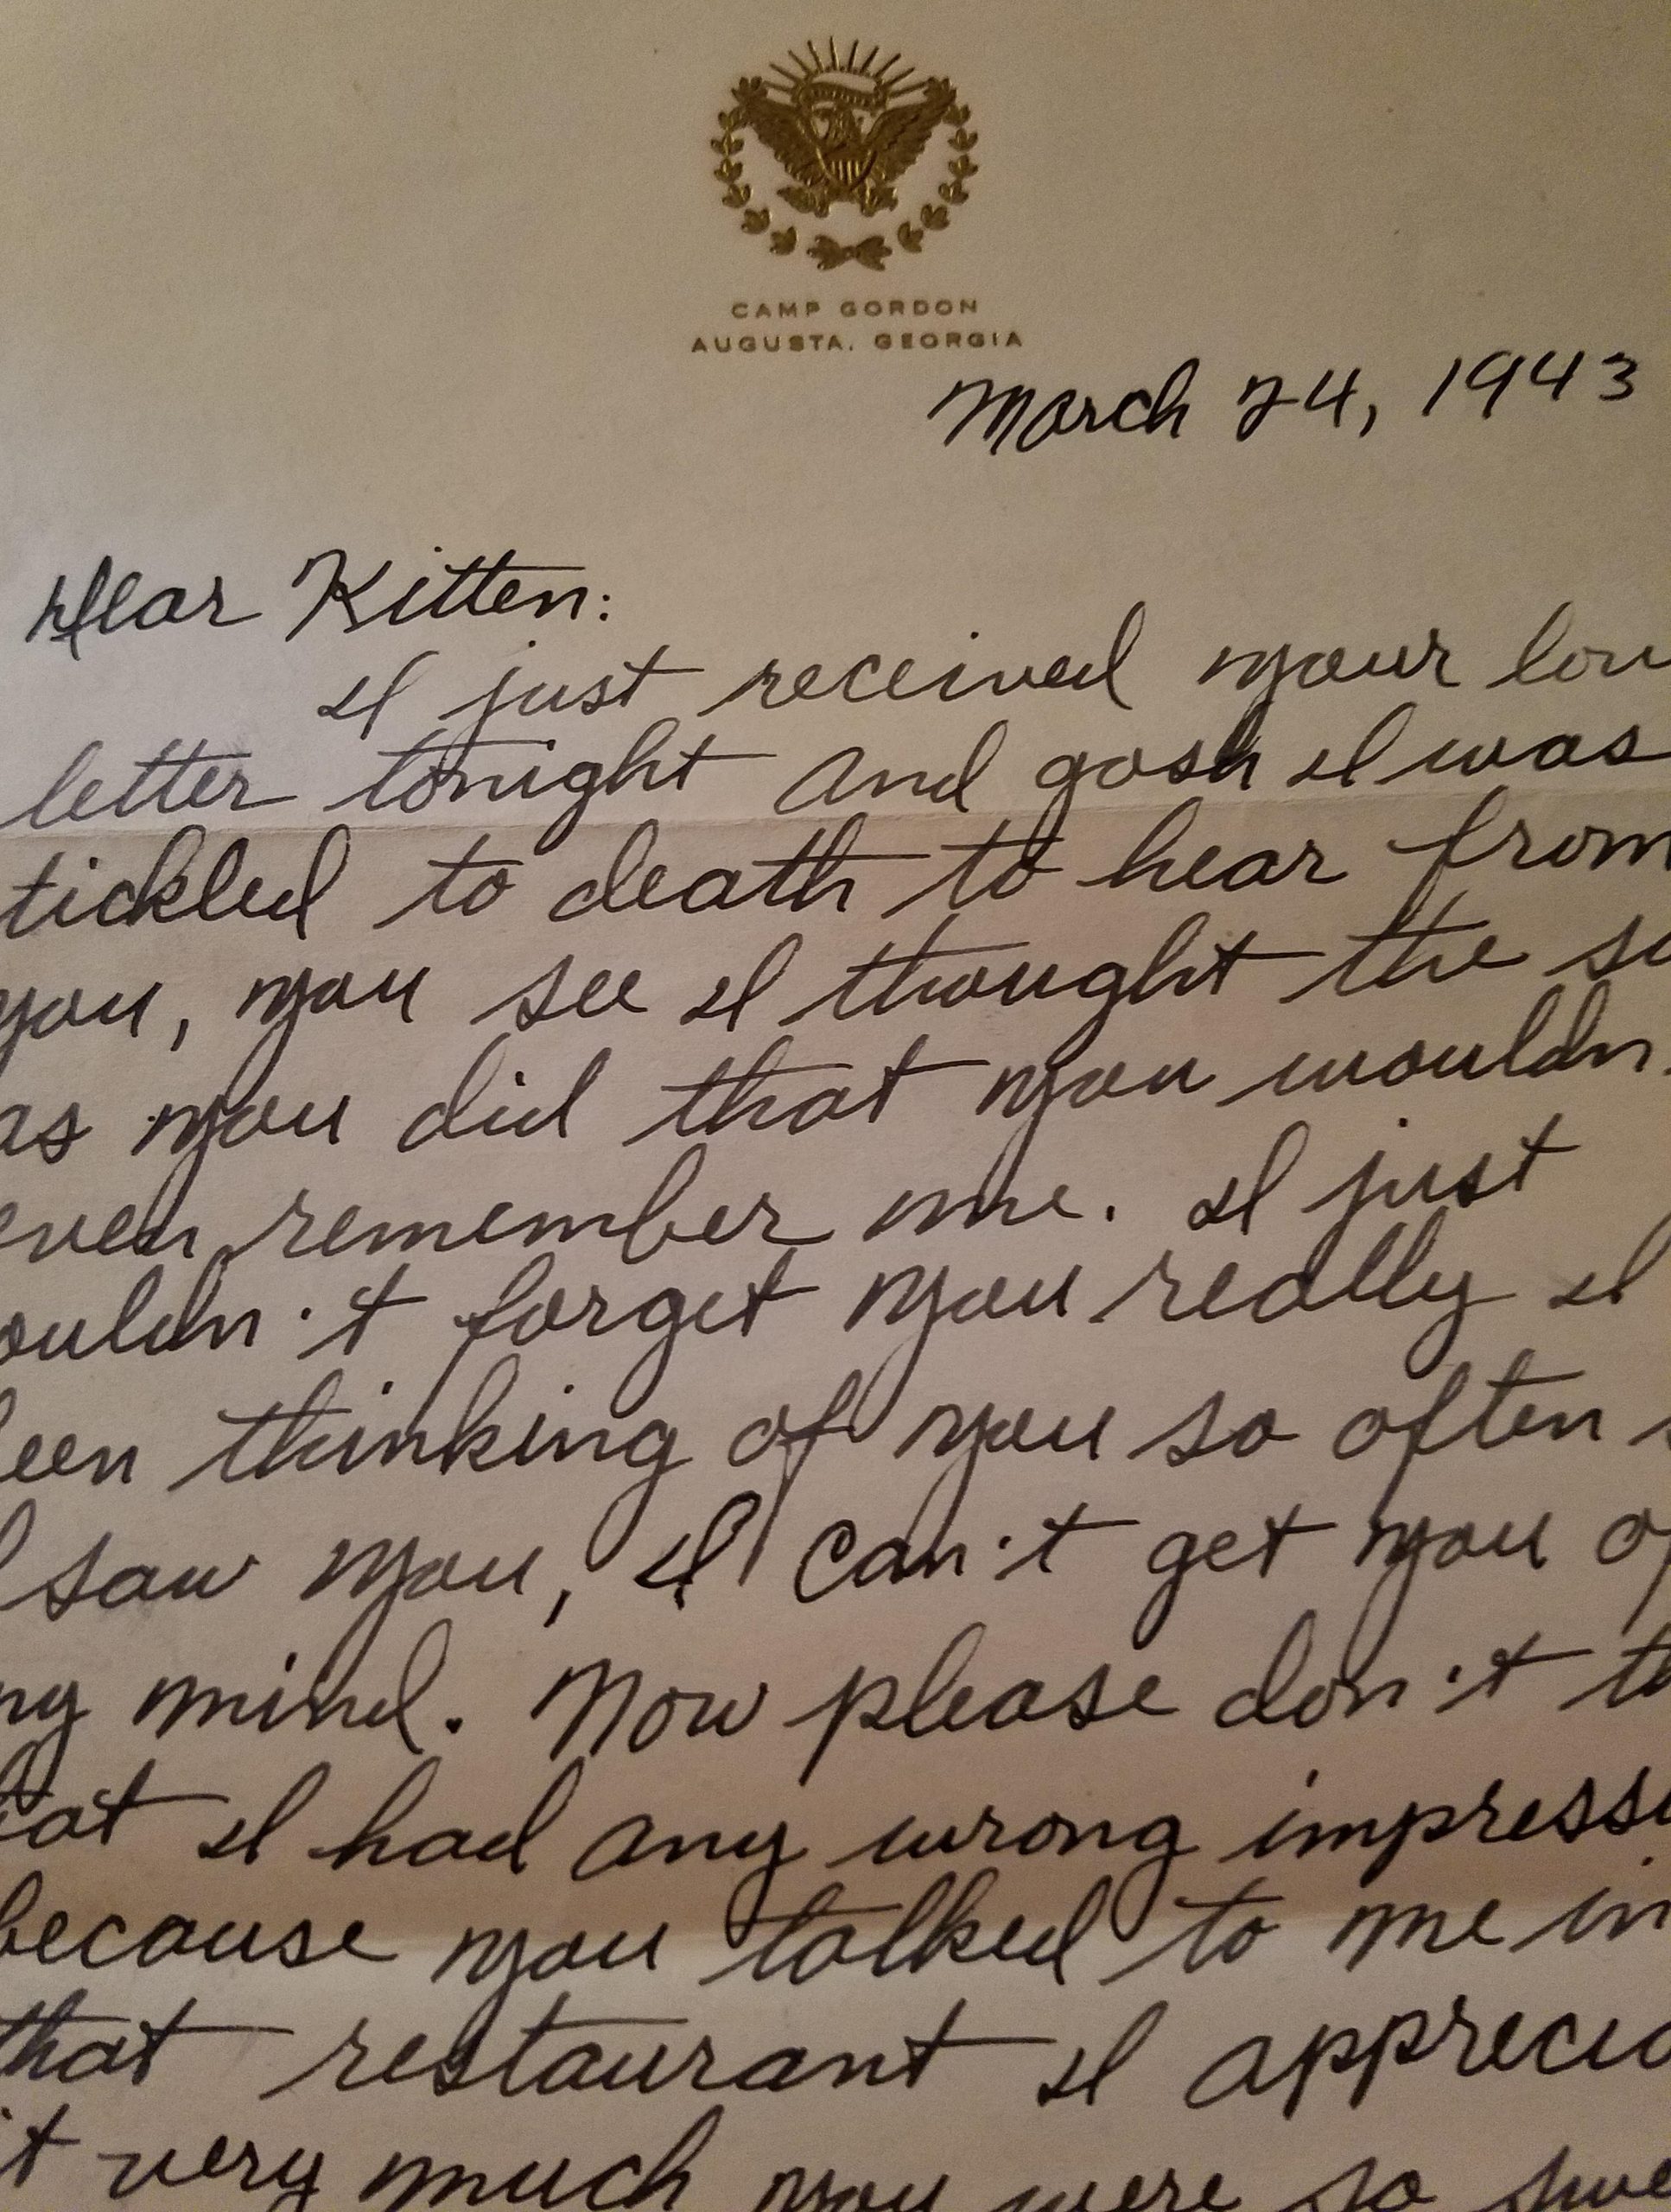 CAMP GORDON
AUGUSTA, GEORGIA
March 24, 1943
Dear Kitten:
I just received your lov
letter tonight and gosh I was
tickled to death to hear from
you, you see I thought the sa
as you did that you wouldn
even remember me. I just
ouldn't forget you really I
een thinking of you so often s
I saw you, I can't get you of
my mind. Now please don't th
hat I had any wrong impressi
because you talked to me in
that restaurant I apprecia
it very much you were so swe